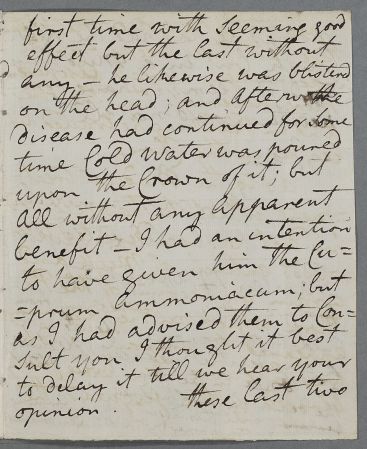 first time with seeming good
effect but the last without
any – he likewise was blistered
on the head; and after the
disease had continued for some
time Cold Water was poured
upon the Crown of it; but
all without any apparent
benefit – I had an intention
to have given him the Cu=
=prum Ammoniacum; but
as I had advised them to Con=
sult you I thought it best
to delay it till we hear your
opinion. these last two